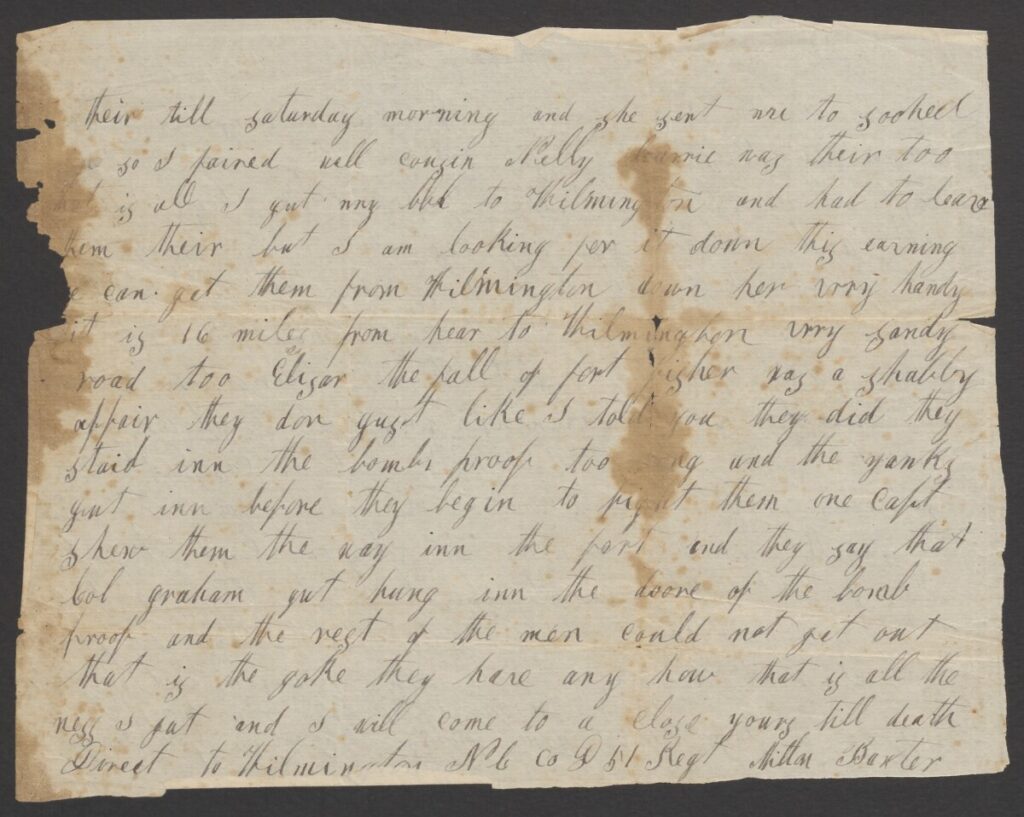 their till saturday morning and she sent me to gooheel
so I faired well cousin Nelly was their too
is all I gut my bbl to Wilmington and had to leave
them their but I am looking for it down this earning
can get them from Wilmington down her vrry handy
it is 16 miles from hear to Wilmington vrry sandy
road too Elizar the fall of fort fisher was a shabby
affair they don gust like I told you they did they
staid inn the bombs proof too long and the yanks
gut inn before they begin to fight them one Capt
shew them the way inn the fort and they say that
Col graham gut hung inn the doore of the bomb
proof and the rest of the men could not get out
that is the joke they have any how that is all the
ness I gut and I will come to a close yours till death
Direct to Wilmington N C Co D 51 Regt Milton Baxter